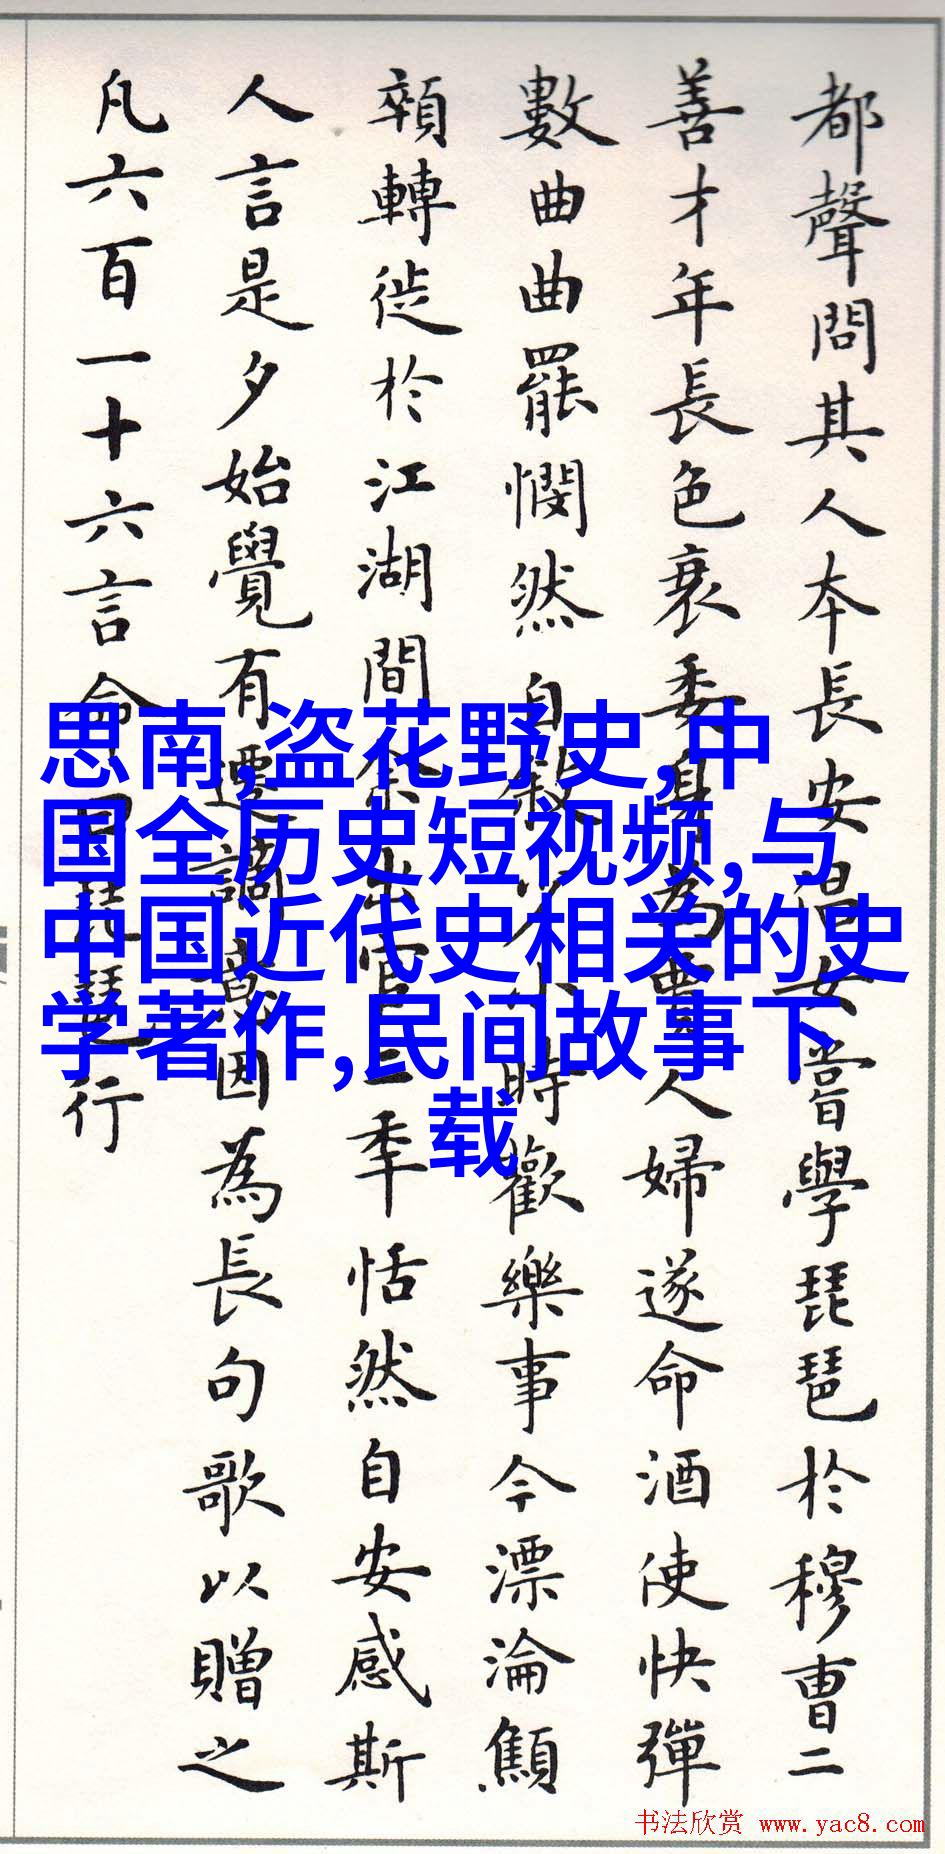 都聲問其人本長安倡女嘗學琵琶於穆曹二
善才年長色衰委身為賈人婦遂命酒使快彈
數曲曲罷憫然自敘少小時歡樂事今漂淪顦
顇轉徙於江湖間余出官二年恬然自安感斯
人言是夕始覺有遷謫意因為長句歌以贈之
凡六百一十六言命曰琵琶行
思南,盗花野史,中
国全历史短视频,与
中国近代史相关的史
学著作,民间故事下
载
书法欣赏 www.yac8.com